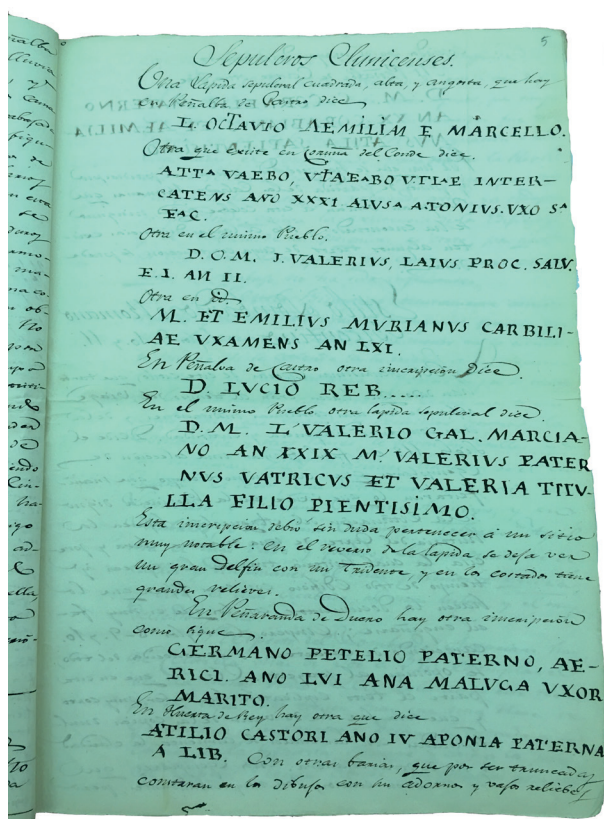 5
Sepulcros Clunicenses.
Otra lapida sepulcral cuadrada, alta, y angosta, que hay
en Peñalba de Castro dice
L. OCTAVIO AEMILIM F. MARCELLO.
Otra que existe en Coruña del Conde dice.
ATTA VAEBO, VTAEABO VTIAE INTER-
CATENS AÑO XXXI AIUSA ATONIUS. VXO SA
FAC.
Otra en el mismo Pueblo.
D. O. M. J. VALERIVS, LAIVS PROC. SALV.
E. I. AN II.
Otra en
M. ET EMILIVS MVRIANVS CARBILI-
AE VXAMENS AN LXI.
En Peñalva de Castro otra inscripcion Dice.
D. LVCIO REB.....
En el mismo Pueblo otra lapida sepulcral dice.
D. M. L. VALERIO GAL. MARCIA-
NO AN XXIX M. VALERIVS PATER
NVS VATRICVS ET VALERIA TITU-
LLA FILIO PIENTISIMO.
Esta inscripcion debio sin duda pertenecer á un sitio
muy notable: en el reverso de la lapida se deja ver
un gran Delfin con un Tridente, y en los costados tiene
grandes relieves.
En Peñaranda de Duero hay otra inscripcion
como sigue
GERMANO PETELIO PATERNO, AE-
RICI. ANO LVI ANA MALUGA VXOR
MARITO.
En Huerta de Rey hay otra que dice
ATILIO CASTORI ANO IV APONIA PATERNA
A LIB. Con otras barias, que por ser truncadas
constaran en los dibujos con sus adornos y vasos relieves